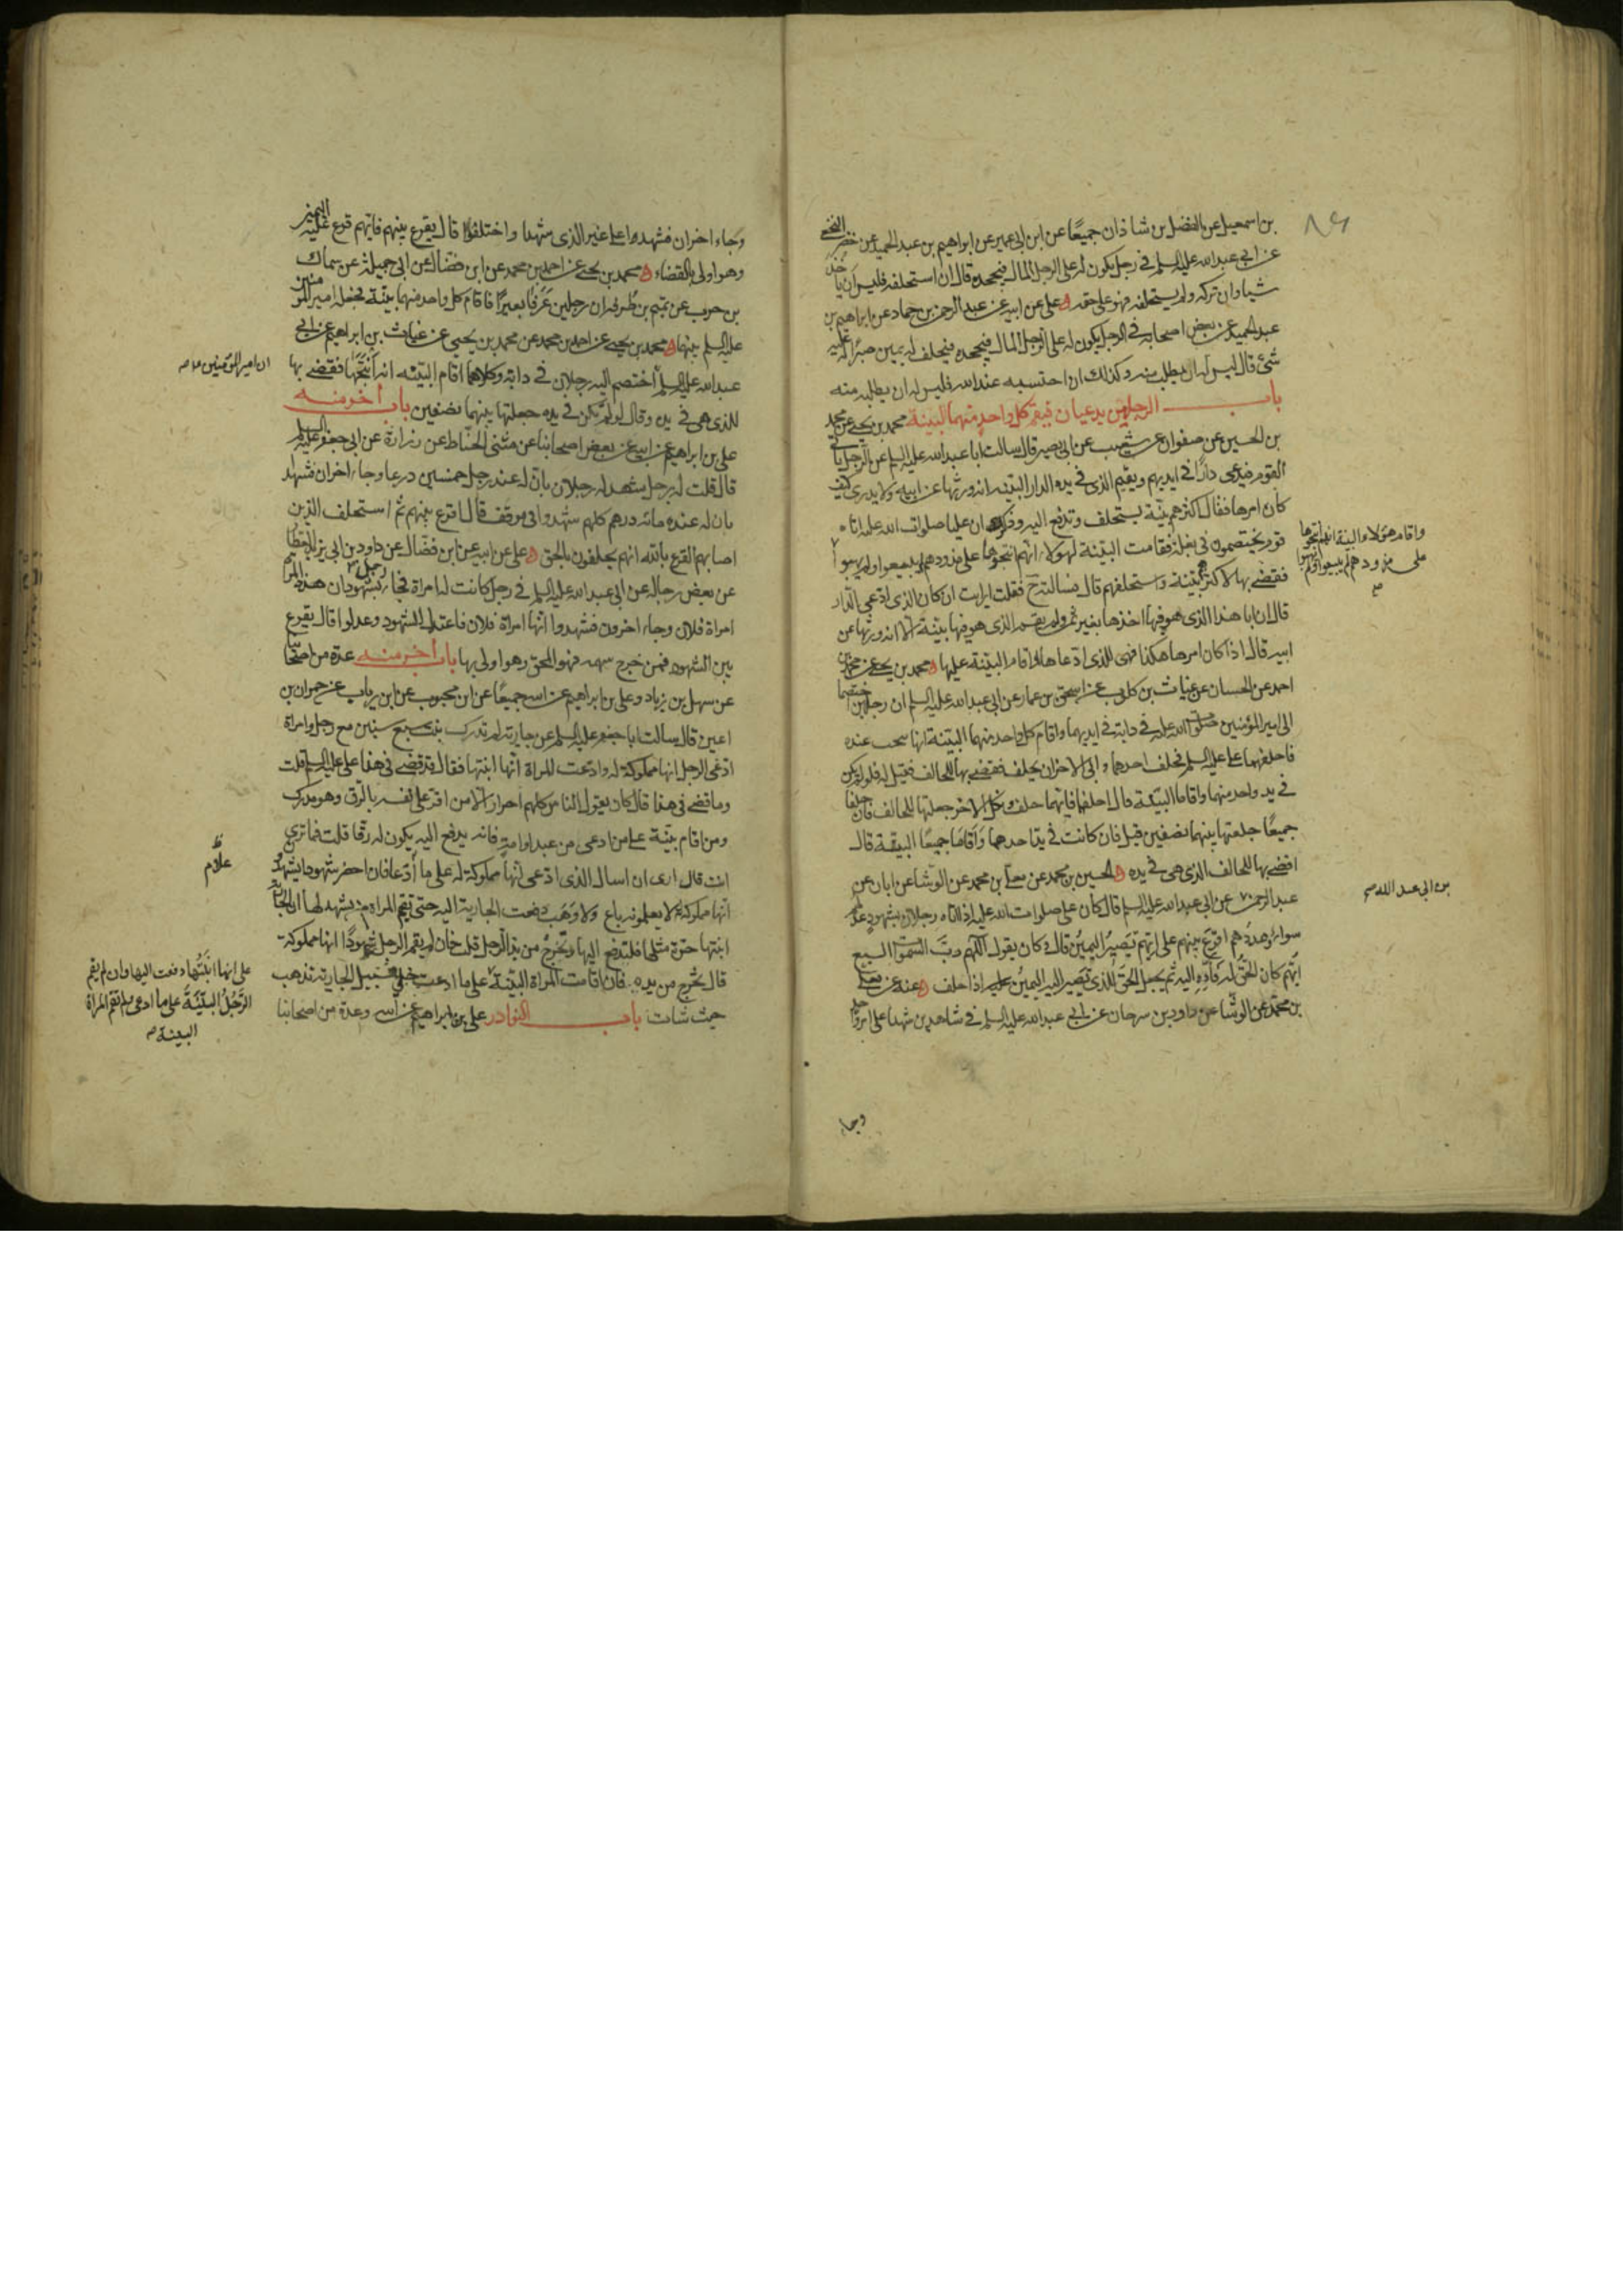 بن اسمعيل عن الفضل بن شاذان جميعًا عن ابن ابى عمير عن ابراهيم بن عبد الحميد عن خضر النخعى
عن ابى عبد الله عليه السلم فى رجل يكون له على الرجل المال فيجحده قال ان استحلفه فليس له ان ياخذ
شيئا وان تركه ولم يستحلفه فهو على حقه على عن ابيه عن عبد الرحمن بن حماد عن ابراهيم بن
عبد الحميد عن بعض اصحابه فى الرجل يكون له على الرجل المال فيجحده فيحلف له يمين صبر اله عليه
شئ قال ليس له ان يطلب منه وكذلك ان احتسبه عند الله فليس له ان يطلبه منه
باب الرجلين يدعيان فيقيم كل واحد منهما البينة محمد بن يحيى عن محمد
بن الحسين عن صفوان عن شعيب عن ابى بصير قال سالت ابا عبد الله عليه السلم عن الرجل ياتى
القوم فيدعى دارًا فى ايديهم ويقيم الذى فى يده الدار البينه انه ورثها عن ابيه ولا يدرى كيف
كان امرها فقال اكثرهم بينة يستحلف وتدفع اليه وذكر ان عليا صلوات الله عليه اتاه
قوم يختصمون فى بغلة فقامت البينة لهولاء انهم انتجوها على مذودهم لم يبيعوا ولم يهبوا
واقام هؤلاء البينة انهم انتجوها
على مذودهم لم يبيعوا ولم يهبوا
فقضى بها لاكثرهم بينة واستحلفهم قال فسالته ح فقلت ارايت ان كان الذى ادعى الدار
قال ان ابا هذا الذى هو فيها اخذها بغير ثمن ولم يقم الذى هو فيها بينة الا انه ورثها عن
ابيه قال اذا كان امرها هكذا فهى للذى ادعاها واقام البينة عليها محمد بن يحيى عن محمد بن
احمد عن الخشاب عن غياث بن كلوب عن اسحق بن عمار عن ابى عبد الله عليه السلم ان رجلين اختصما
الى امير المؤمنين صلوات الله عليه فى دابة فى ايديهما واقام كل واحد منهما البينة انها نتجت عنده
فاحلفهما على عليه السلم فحلف احدهما وابى الاخر ان يحلف فقضى بها للحالف فقيل له فلو لم تكن
فى يد واحد منهما واقاما البينة قال احلفهما فايهما حلف ونكل الاخر جعلتها للحالف فان حلفا
جميعًا جعلتها بينهما نصفين قيل فان كانت فى يد احدهما واقاما جميعًا البينة قال
اقضى بها للحالف الذى هى فى يده الحسين بن محمد عن معلى بن محمد عن الوشا عن ابان عن
بن ابى عبد الله
عبد الرحمن عن ابى عبد الله عليه السلم قال كان على صلوات الله عليه اذا اتاه رجلان بشهود عدلهم
سواء وعددهم اقرع بينهم على ايهم تصير اليمين قال وكان يقول اللهم رب السموات السبع
ايهم كان الحق له فاده اليه ثم يجعل الحق للذى تصير اليه اليمين عليه اذا حلف عنه عن معلى
بن محمد عن الوشا عن داود بن سرحان عن ابى عبد الله عليه السلم فى شاهدين شهدا على امر واحد
وجاء
وجاء اخران فشهدوا على غير الذى شهدا واختلفوا قال يقرع بينهم فايهم قرع عليه اليمين
وهو اولى بالقضاء محمد بن يحيى عن احمد بن محمد عن ابن فضال عن ابى جميلة عن سماك
بن حرب عن تميم بن طرفه ان رجلين عرفا بعيرًا فاقام كل واحد منهما بينة فجعله امير المؤمنين
عليه السلم بينهما محمد بن يحيى عن احمد بن محمد عن محمد بن يحيى عن غياث بن ابراهيم عن ابى
عبد الله عليه السلم اختصم اليه رجلان فى دابة وكلاهما اقام البينه انه انتجها فقضى بها
ان امير المؤمنين
للذى هى فى يده وقال لو لم تكن فى يده جعلتها بينهما نصفين باب اخر منه
على بن ابراهيم عن ابيه عن بعض اصحابنا عن مثنى الحناط عن زرارة عن ابى جعفر عليه السلم
قال قلت له رجل شهد له رجلان بان له عند رجل خمسين درهما وجاء اخران فشهدا
بان له عنده مائه درهم كلهم شهدوا فى موقف قال اقرع بينهم ثم استحلف الذين
اصابهم القرع بالله انهم يحلفون بالحق على عن ابيه عن ابن فضال عن داود بن ابى يزيد العطار
عن بعض رجاله عن ابى عبد الله عليه السلم فى رجل كانت له امراة فجاء رجل بشهود ان هذه المراة
امراة فلان وجاء اخرون فشهدوا انها امراة فلان فاعتدل الشهود وعدلوا قال يقرع
بين الشهود فمن خرج سهمه فهو المحق وهو اولى بها باب اخر منه عدة من اصحابنا
عن سهل بن زياد وعلى بن ابراهيم عن ابيه جميعًا عن ابن محبوب عن ابن رياب عن حمران بن
اعين قال سالت ابا جعفر عليه السلم عن جارية لم تدرك بنت سبع سنين مع رجل وامراة
ادعى الرجل انها مملوكة له وادعت المراة انها ابنتها فقال قد قضى فى هذا على عليه السلم قلت
وما قضى فى هذا قال كان يقول الناس كلهم احرار الا من اقر على نفسه بالرق وهو مدرك
ومن اقام بينة على من ادعى من عبد او امة فانه يدفع اليه يكون له رقا قلت فما ترى
انت قال ارى ان اسال الذى ادعى انها مملوكة له على ما ادعا فان احضر شهودا يشهدون
انها مملوكة لا يعلمونه باع ولا وهب دفعت الجارية اليه حتى تقيم المراة من يشهد لها ان الجارية
ابنتها حرة مثلها فلتدفع اليها وتخرج من يد الرجل قلت فان لم يقم الرجل شهودًا انها مملوكة
قال تخرج من يده فان اقامت المراة البينة على ما ادعت خلى سبيل الجارية تذهب
على انها ابنتها دفعت اليها وان لم يقم
الرجل البينة على ما ادعى ولم تقم المراة
البينة
حيث شاءت باب النوادر على بن ابراهيم عن ابيه وعدة من اصحابنا